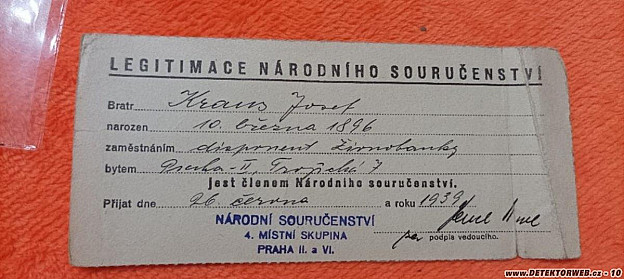 LEGITIMACE NÁRODNÍHO SOURUČENSTVÍ
Bratr Kraus Josef
narozen 10. března 1896
zaměstnáním disponent Živnobanky
bytem Praha-II, Trojická 7
jest členem Národního souručenství.
Přijat dne 26 června a roku 1939
NÁRODNÍ SOURUČENSTVÍ
4. MÍSTNÍ SKUPINA
PRAHA II. a VI.
podpis vedoucího.
www.DETEKTORWEB.cz - 10